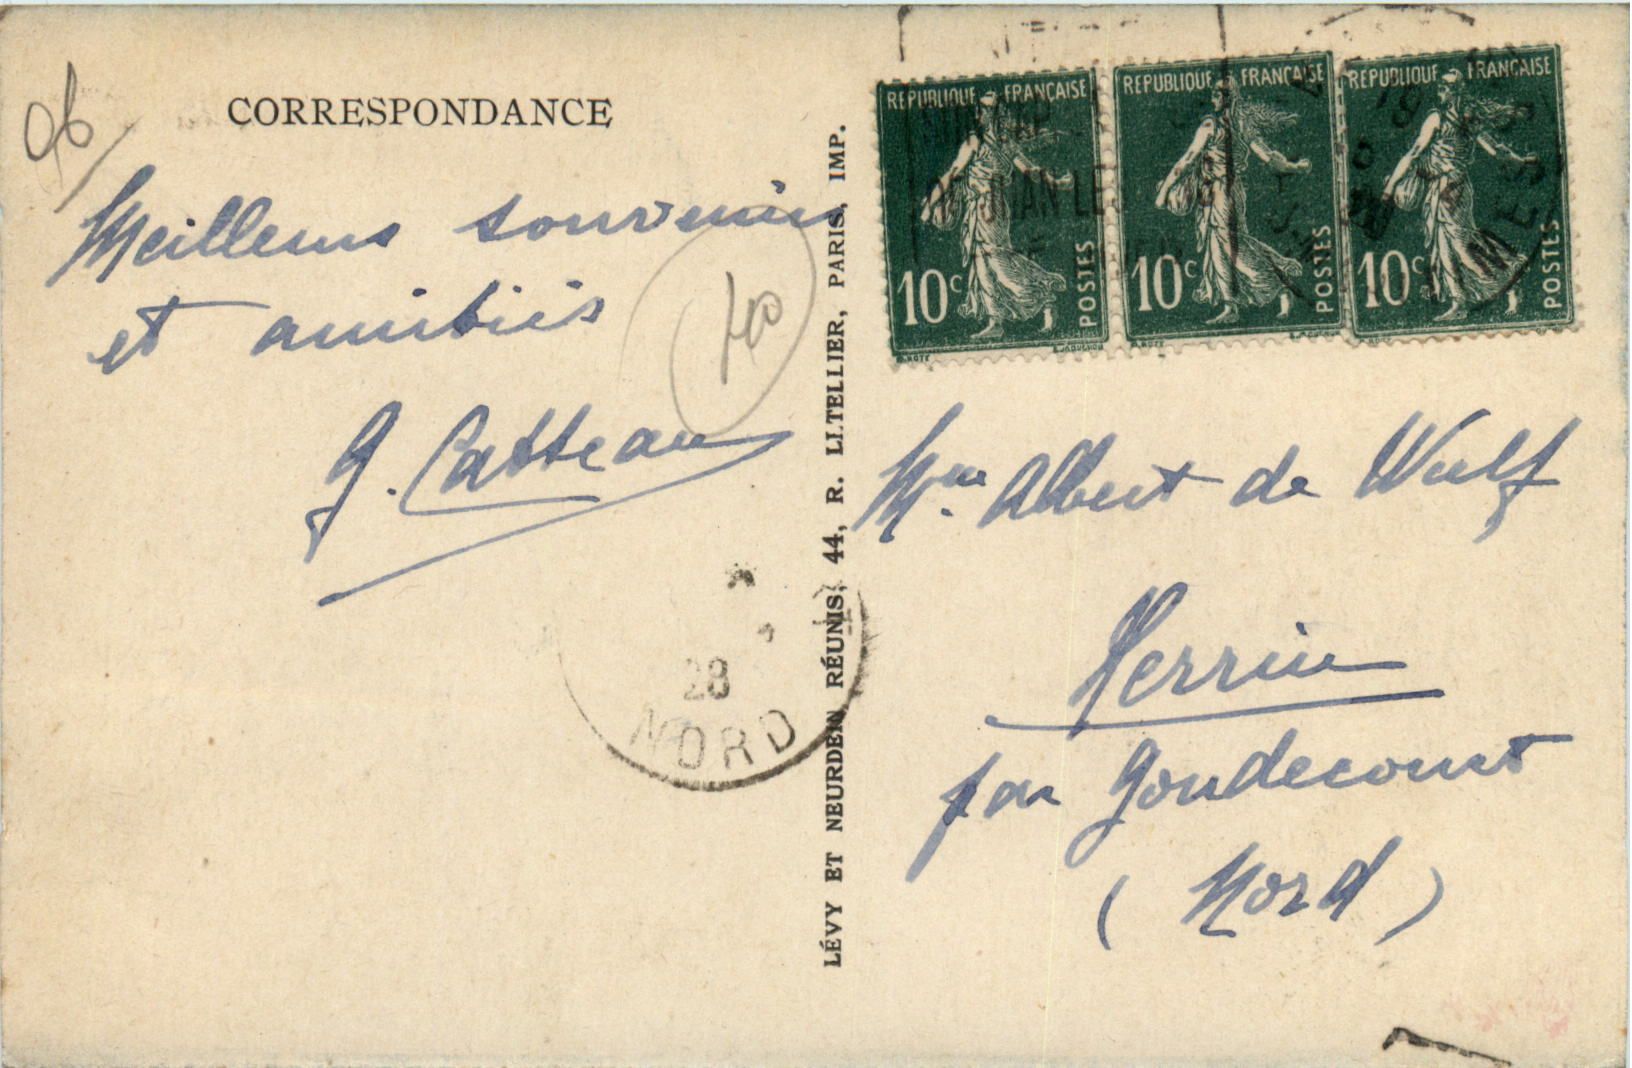 96
CORRESPONDANCE
Meilleurs souvenirs
et amitiés
G. Catteau
400
LÉVY ET NEURDEIN RÉUNIS, 44, R. LETELLIER, PARIS, IMP.
28
NORD
REPUBLIQUE FRANÇAISE
10c
POSTES
REPUBLIQUE FRANÇAISE
10c
POSTES
REPUBLIQUE FRANÇAISE
10c
POSTES
JUAN-LES
Mme Albert de Wulf
Herrin
par Gondecourt
(Nord)